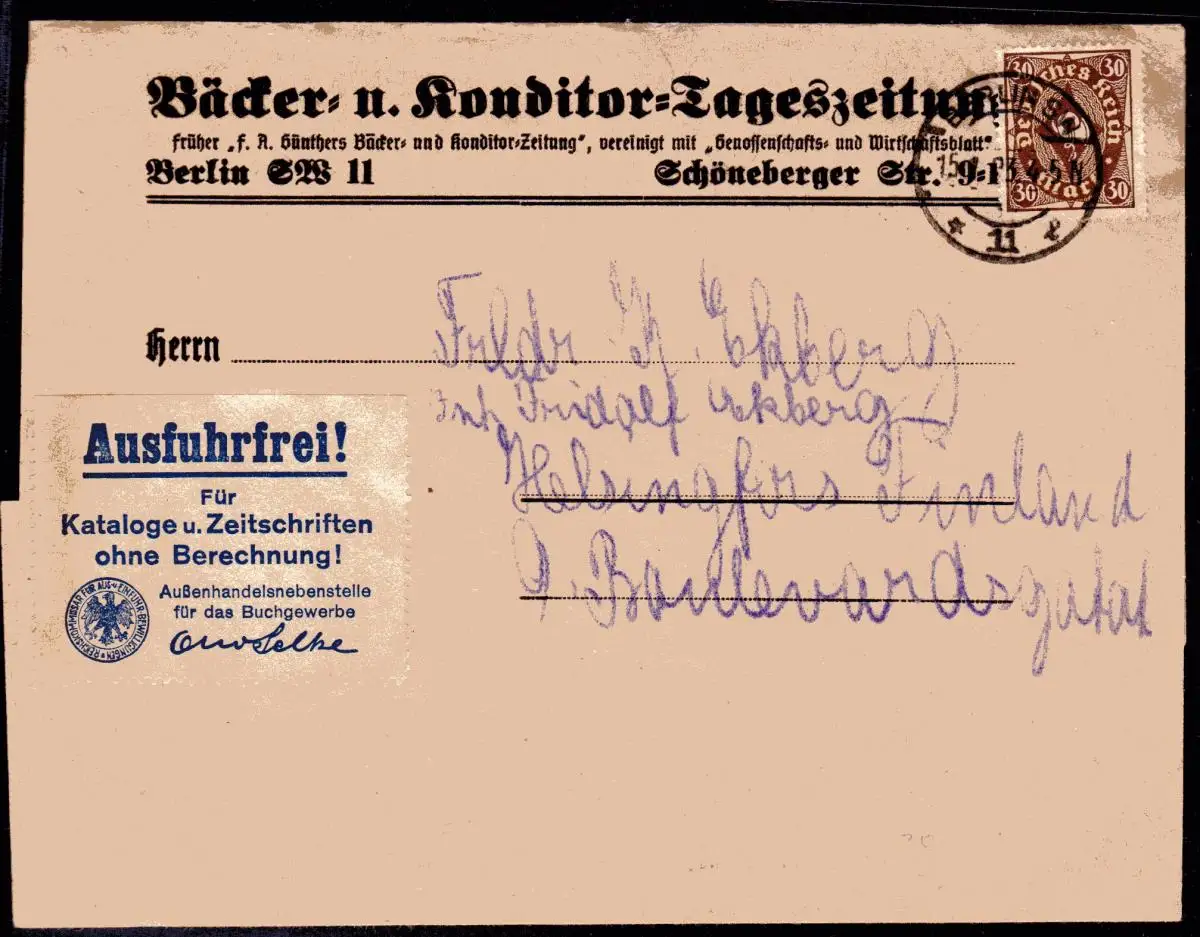 Bäcker- u. Konditor-Tageszeitung
früher „F. A. Günthers Bäcker- und Konditor-Zeitung“, vereinigt mit „Genossenschafts- und Wirtschaftsblatt“
Berlin SW 11
Schöneberger Str. 9-1
30 30
Deutsches Reich
Mark
30 30
BERLIN SW
15. 1. 23. 4-5 N
* 11 e
Herrn
Fredr Ekberg
Inh Fridolf Ekberg
Helsingfors Finland
9, Boulevardsgatat
Ausfuhrfrei!
Für
Kataloge u. Zeitschriften
ohne Berechnung!
Außenhandelsnebenstelle
für das Buchgewerbe
REICHSKOMMISSAR FÜR AUS- U. EINFUHRBEWILLIGUNGEN
Otto Selke